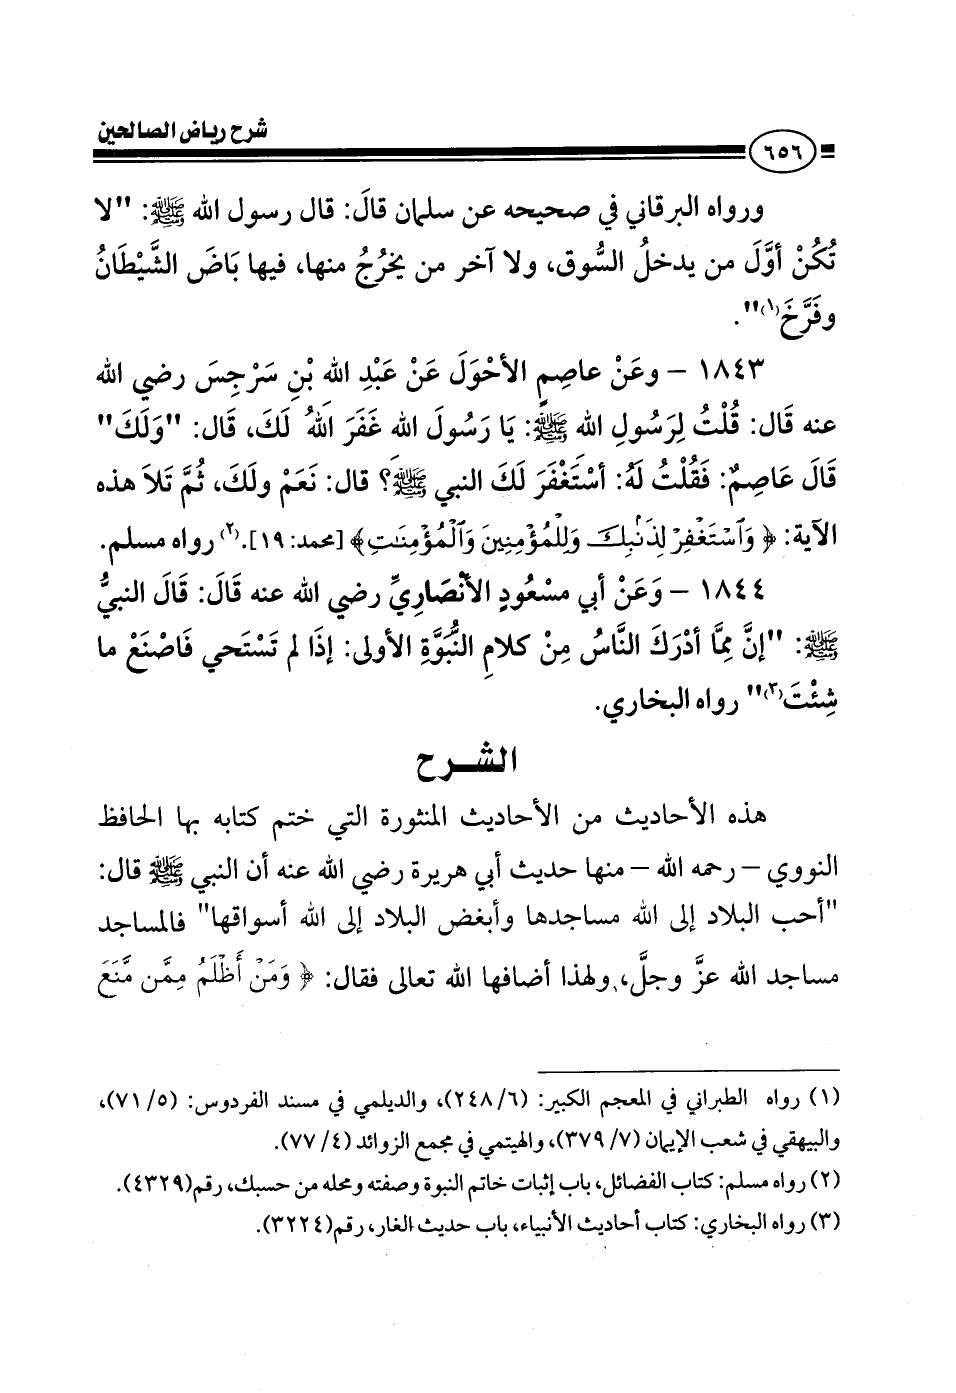 شرح رياض الصالحين
٦٥٦
ورواه البرقاني في صحيحه عن سلمان قالَ: قال رسول الله ﷺ: "لا
تُكُنْ أوَّلَ من يدخلُ السُّوق، ولا آخر من يخرُجُ منها، فيها بَاضَ الشَّيْطَانُ
وفَرَّخَ(١)".
١٨٤٣ – وعَنْ عاصِمٍ الأحْوَلَ عَنْ عَبْدِ الله بْنِ سَرْجِسَ رضي الله
عنه قَال: قُلْتُ لِرَسُولِ الله ﷺ: يَا رَسُولَ الله غَفَرَ اللهُ لَكَ، قَال: "وَلَكَ"
قَالَ عَاصِمٌ: فَقُلْتُ لَهُ: أسْتَغْفَرَ لَكَ النبي ﷺ؟ قال: نَعَمْ ولَكَ، ثُمَّ تَلاَ هذه
الآية: ﴿ وَٱسْتَغْفِرْ لِذَنۢبِكَ وَلِلْمُؤْمِنِينَ وَٱلْمُؤْمِنَٰتِ﴾ [محمد: ١٩].(٢) رواه مسلم.
١٨٤٤ – وَعَنْ أبي مسْعُودٍ الأنْصَارِيِّ رضي الله عنه قَالَ: قَالَ النبيُّ
ﷺ: "إنَّ مِمَّا أدْرَكَ النَّاسُ مِنْ كلامِ النُّبُوَّةِ الأولى: إذَا لم تَسْتَحي فَاصْنَعْ ما
شِئْتَ(٣)" رواه البخاري.
الشـرح
هذه الأحاديث من الأحاديث المنثورة التي ختم كتابه بها الحافظ
النووي – رحمه الله – منها حديث أبي هريرة رضي الله عنه أن النبي ﷺ قال:
"أحب البلاد إلى الله مساجدها وأبغض البلاد إلى الله أسواقها" فالمساجد
مساجد الله عزَّ وجلَّ، ولهذا أضافها الله تعالى فقال: ﴿ وَمَنْ أَظْلَمُ مِمَّن مَّنَعَ
(١) رواه الطبراني في المعجم الكبير: (٢٤٨/٦)، والديلمي في مسند الفردوس: (٧١/٥)،
والبيهقي في شعب الإيمان (٣٧٩/٧)، والهيتمي في مجمع الزوائد (٧٧/٤).
(٢) رواه مسلم: كتاب الفضائل، باب إثبات خاتم النبوة وصفته ومحله من حسبك، رقم(٤٣٢٩).
(٣) رواه البخاري: كتاب أحاديث الأنبياء، باب حديث الغار، رقم(٣٢٢٤).